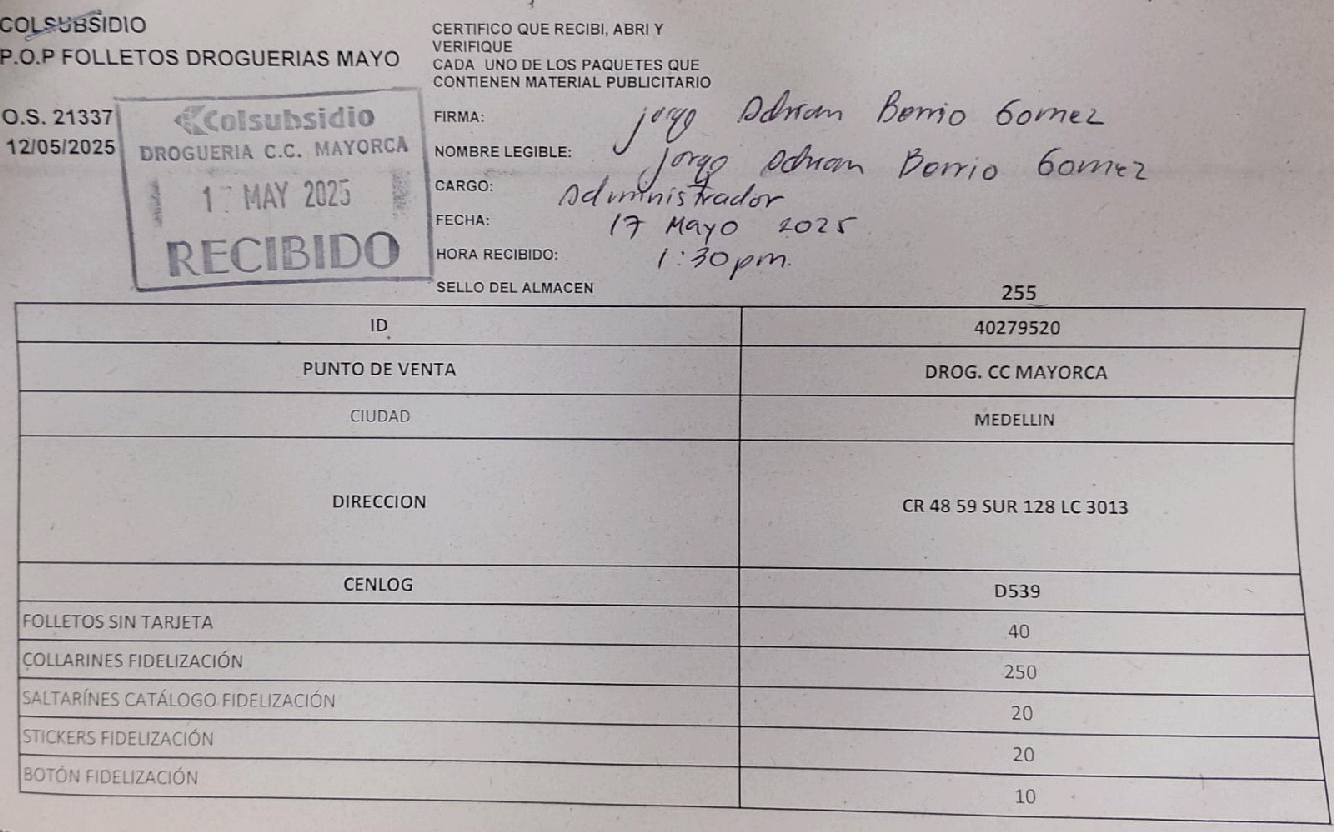 COLSUBSIDIO
P.O.P FOLLETOS DROGUERIAS MAYO
O.S. 21337
12/05/2025
Colsubsidio
DROGUERIA C.C. MAYORCA
MAY 2025
RECIBIDO
CERTIFICO QUE RECIBI, ABRI Y
VERIFIQUE
CADA UNO DE LOS PAQUETES QUE
CONTIENEN MATERIAL PUBLICITARIO
FIRMA: Jorge Adrian Berrio Gomez
NOMBRE LEGIBLE: Jorge Adrian Berrio Gomez
CARGO: Administrador
FECHA: 17 Mayo 2025
HORA RECIBIDO: 1:30 pm.
SELLO DEL ALMACEN
255
ID 40279520
PUNTO DE VENTA DROG. CC MAYORCA
CIUDAD MEDELLIN
DIRECCION CR 48 59 SUR 128 LC 3013
CENLOG D539
FOLLETOS SIN TARJETA 40
COLLARINES FIDELIZACIÓN 250
SALTARÍNES CATÁLOGO FIDELIZACIÓN 20
STICKERS FIDELIZACIÓN 20
BOTÓN FIDELIZACIÓN 10